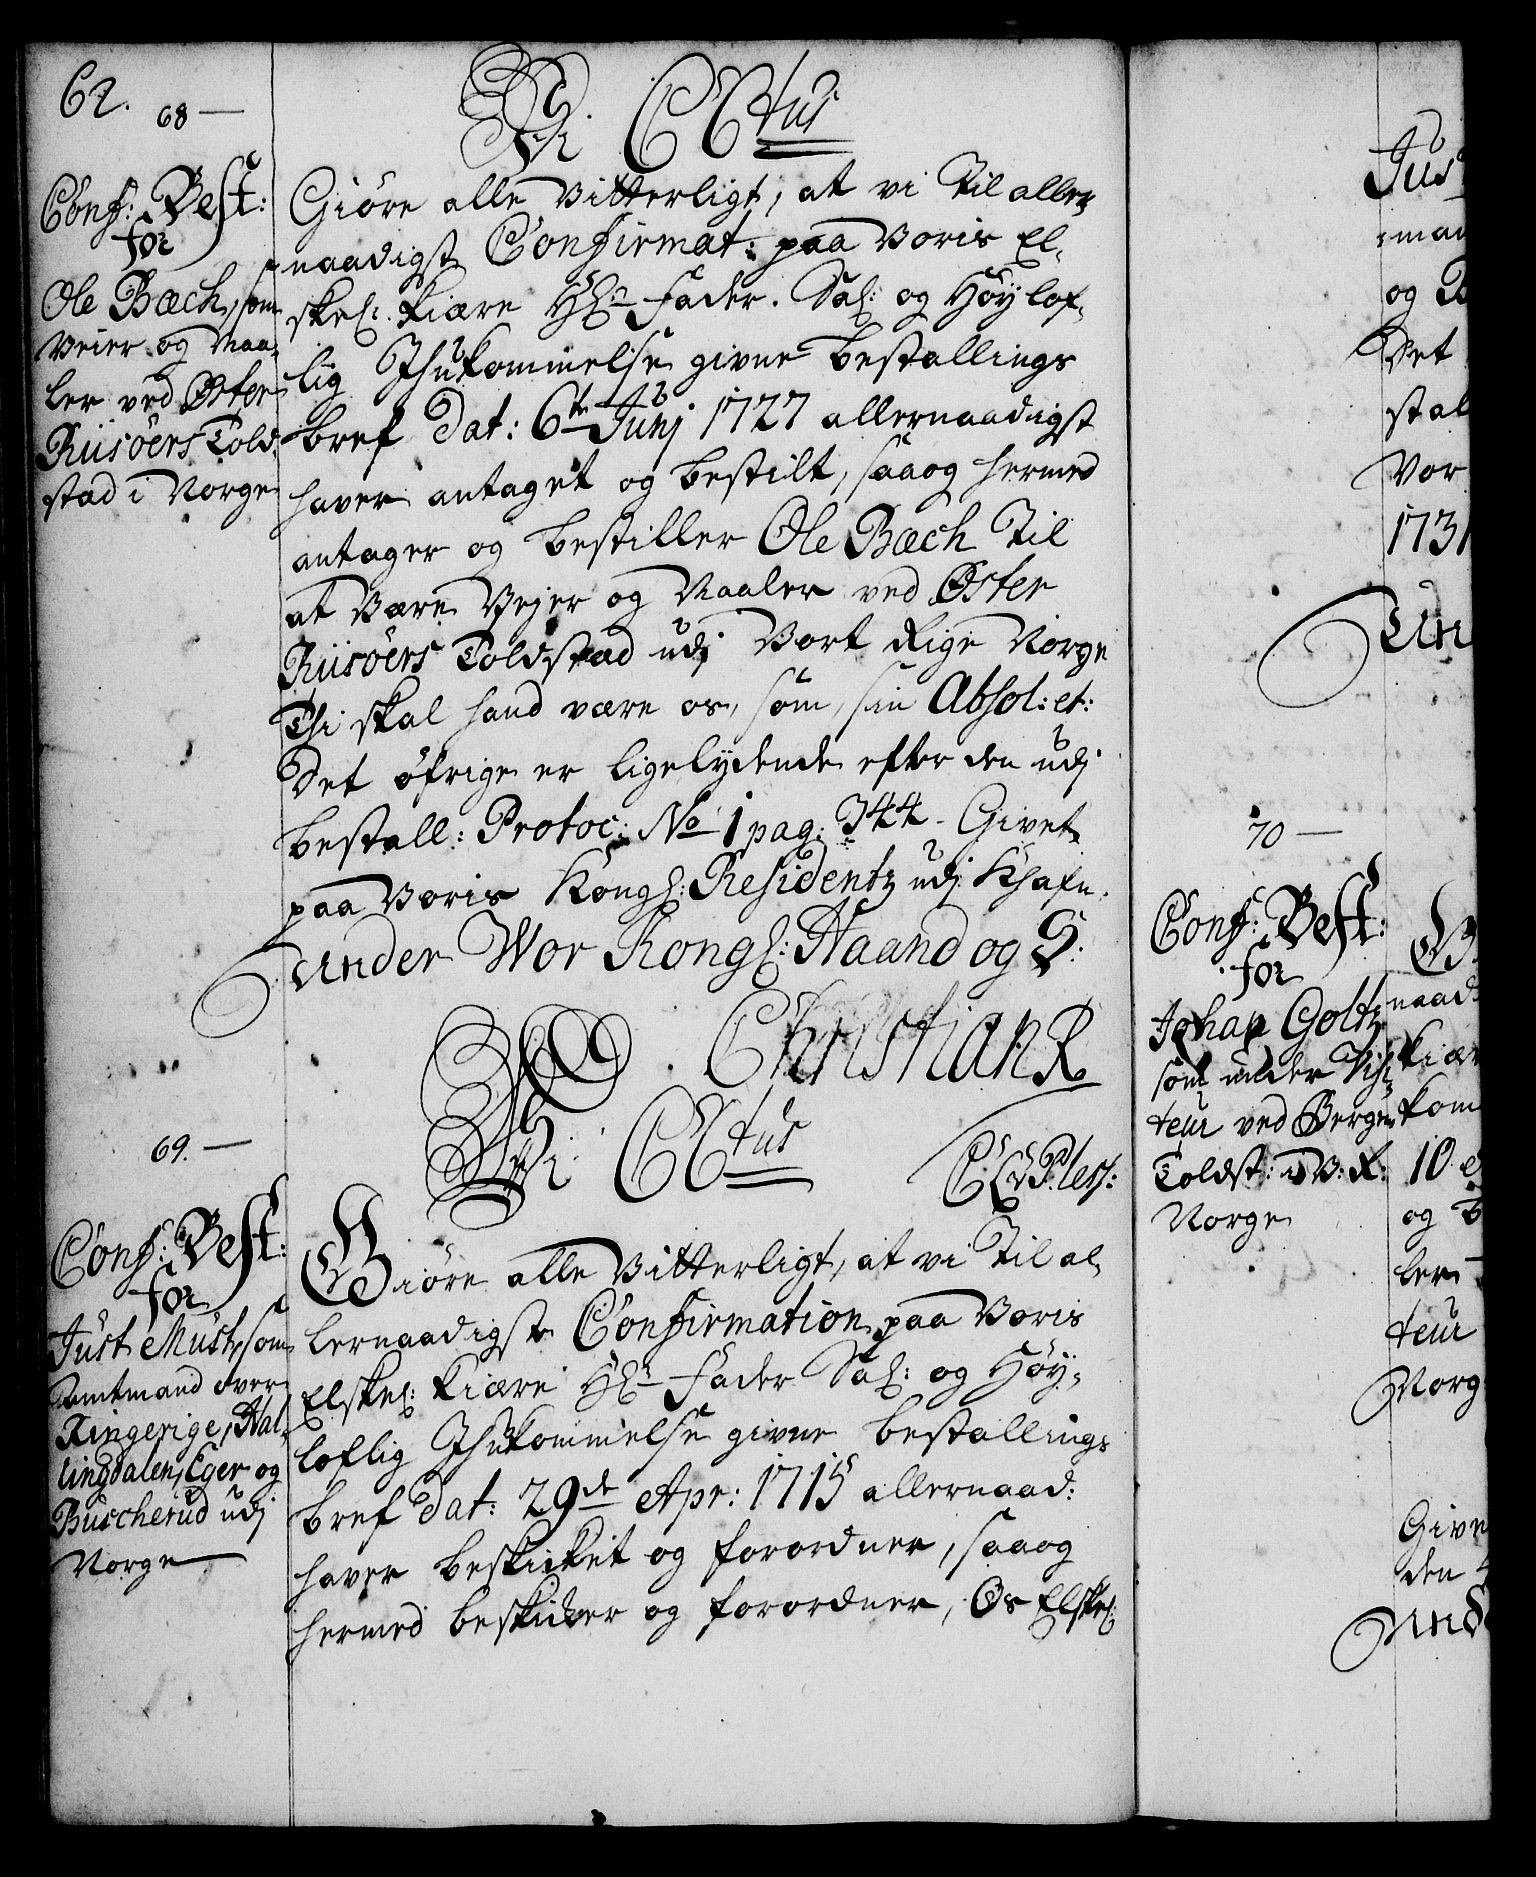 62.
68 —
Conf: Best:
for
Ole Bæch, som
Veier og Maa-
ler ved Øster
Riisöers Told-
stad i Norge
Vi C 6tus
Giöre alle Vitterligt, at vi Til aller-
naadigst Confirmat: paa Voris El-
skel: kiære Hr Fader. Sal: og Höylof-
lig Ihukommelse givne bestallings
bref Dat: 6te Junj 1727 allernaadigst
haver antaget og bestilt, saa og hermed
antager og bestiller Ole Bæch Til
at være Vejer og Maaler ved Øster
Riisöers Toldstad udj Vort Rige Norge
Thi skal hand være os, som, sin Absol: et:
Det öfrige er ligelydende efter den udj
bestall: Protoc: No 1 pag: 344 - Givet
paa Voris Kongl: Residentz udj Khafn.
Under Wor Kongl: Haand og S:
Christian R
69. —
Vi C 6tus
C A v Pless:
Conf: Best:
for
Just Must, som
Amtmand over
Ringerige, Hal-
lingdalen, Eger og
Buscherud udj
Norge
Giöre alle Vitterligt, at vi Til al-
lernaadigste Confirmation paa Voris
Elskel: kiære Hr Fader Sal: og Höy-
loflig Ihukommelse givne bestallings
bref Dat: 29de Apr: 1715 allernaad:
haver beskicket og forordnet, saa og
hermed beskicker og forordner, Os Elskel:
Jus
man
og B
Det
stal
Vor
1731
Un
70 —
Conf: Best:
for
Johan Goltz
som under Visi-
teur ved Bergens
Toldst: i V: R:
Norge
G
naad
kiær
kom
10 
og b
ler
teur
Norg
Give
den
Und